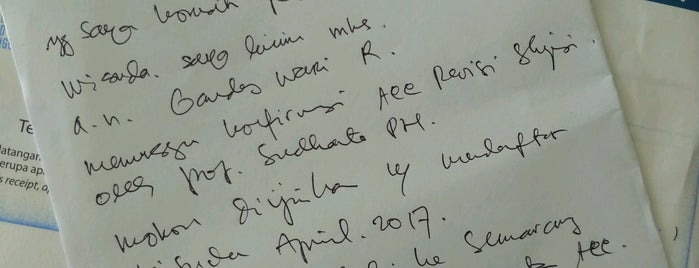 yg saya
wisuda. saya kirim mhs.
a.n. Gandes Wari R.
menunggu konfirmasi Acc Revisi Skripsi.
oleh Prof. Sudharto PH.
mohon diijinkan mendaftar
April. 2017.
ke Semarang
Acc.
Te
latangan
erupa ap
s receipt, a